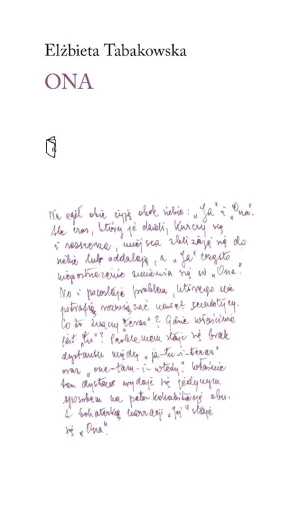 Elżbieta Tabakowska
ONA
Na ogół obie żyją obok siebie: „Ja” i „Ona”.
Ale czas, który je dzieli, kurczy się
i rozszerza, miejsca zbliżają się do
siebie lub oddalają, a „Ja” często
niepostrzeżenie zmienia się w „Ona”.
No i pozostaje problem, którego nie
potrafią rozwiązać nawet semantycy.
Co to znaczy „teraz”? Gdzie właściwie
jest „tu”? Problemem staje się brak
dystansu między „ja-tu-i-teraz”
oraz „one-tam-i-wtedy”. Właśnie
ten dystans wydaje się jedynym
sposobem na pełną kohabitację obu.
I bohaterką narracji „Jej” staje
się „Ona”.